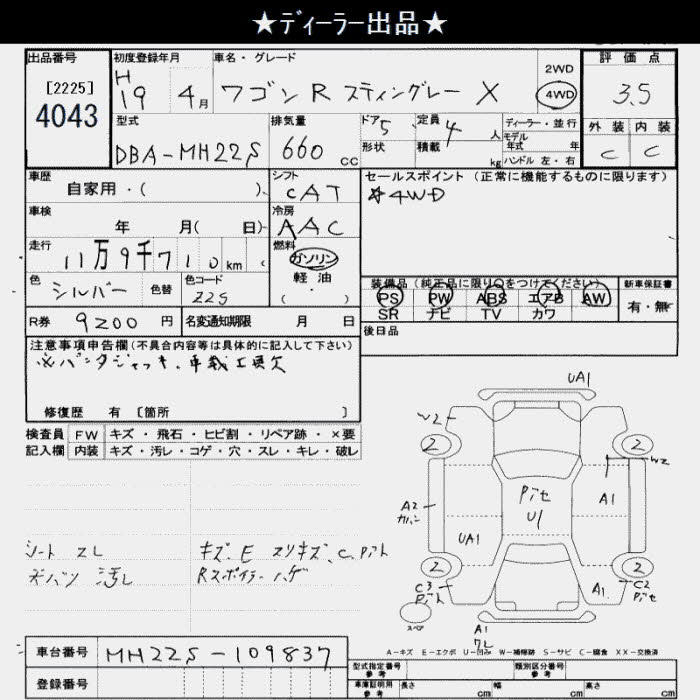 ★ディーラー出品★
出品番号 初度登録年月 車名・グレード 評価点
[2225] 4043
H19 4月 ワゴンR スティングレー X 2WD 4WD 3.5
型式 排気量 ドア 5 定員 4人 ディーラー・並行 外装 内装
形状 積載 kg モデル年式 年 ハンドル 左・右
DBA-MH22S 660 CC C C
車歴 自家用・( ) シフト CAT セールスポイント (正常に機能するものに限ります)
☆4WD
車検 年 月( 日) 冷房 AAC
走行 11万9千710km 燃料 ガソリン 軽油 ( ・ )
色 シルバー 色替 色コード Z2S
装備品 (純正品に限り○をつけてください) 新車保証書
PS PW ABS エアB AW 有・無
SR ナビ TV カワ
R券 9200円 名変通知期限 月 日 後日品
注意事項申告欄 (不具合内容等は具体的に記入して下さい)
※パンタジャッキ、車載工具欠
修復歴 有 [箇所 ]
検査員記入欄 FW キズ・飛石・ヒビ割・リペア跡・×要
内装 キズ・汚レ・コゲ・穴・スレ・キレ・破レ
シート スレ キズ、E スリキズ、C、Pit
天バリ 汚レ Rスポイラーハゲ
UA1
W2
2 2
W2
A2
A1
U1
UA1
2 2
C3
A1
C2
スペア
A1
ワレ
A-キズ E-エクボ U-凹み W-補修跡 S-サビ C-腐食 XX-交換済
車台番号 MH22S-109837
登録番号
型式指定番号 参考 類別区分番号 参考
車庫証明用 参考 長さ cm 幅 cm 高さ cm